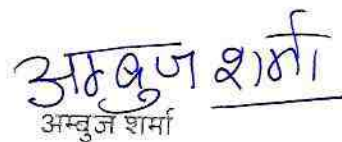 अम्बुज शर्मा
अम्बुज शर्मा